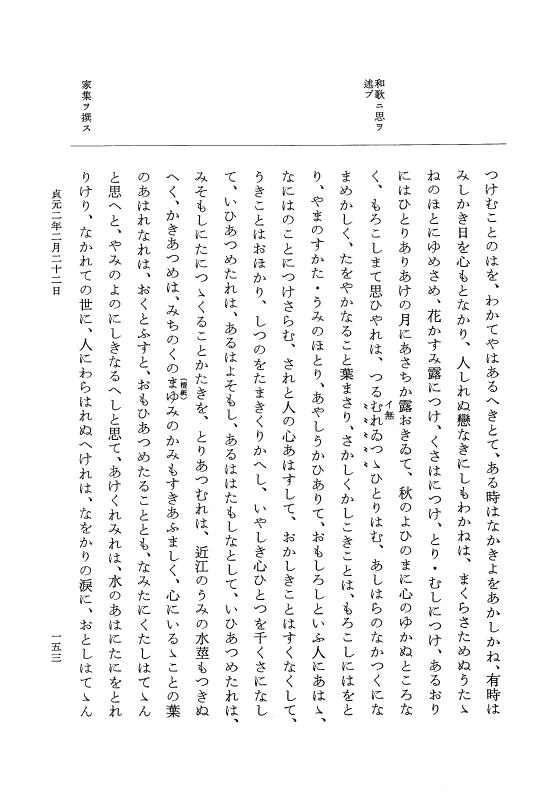 和歌ニ思ヲ
述ブ
家集ヲ撰ス
つけむことのはを、わかてやはあるへきとて、ある時はなかきよをあかしかね、有時は
みしかき日を心もとなかり、人しれぬ戀なきにしもわかねは、まくらさためぬうたゝ
ねのほとにゆめさめ、花かすみ露につけ、くさはにつけ、とり・むしにつけ、あるおり
にはひとりありあけの月にあさちか露おきゐて、秋のよひのまに心のゆかぬところな
イ無
く、もろこしまて思ひやれは、つるむれゐつゝひとりはむ、あしはらのなかつくにな
まめかしく、たをやかなること葉まさり、さかしくかしこきことは、もろこしにはをと
り、やまのすかた・うみのほとり、あやしうかひありて、おもしろしといふ人にあはゝ、
なにはのことにつけさらむ、されと人の心あはすして、おかしきことはすくなくして、
うきことはおほかり、しつのをたまきくりかへし、いやしき心ひとつを千くさになし
て、いひあつめたれは、あるはよそもし、あるははたもしなとして、いひあつめたれは、
みそもしにたにつゝくることかたきを、とりあつむれは、近江のうみの水莖もつきぬ
（檀紙）
へく、かきあつめは、みちのくのまゆみのかみもすきあふましく、心にいるゝことの葉
のあはれなれは、おくとふすと、おもひあつめたることとも、なみたにくたしはてゝん
と思へと、やみのよのにしきなるへしと思て、あけくれみれは、水のあはにたにをとれ
りけり、なかれての世に、人にわらはれぬへけれは、なをかりの涙に、おとしはてゝん
貞元二年二月二十二日
一五三